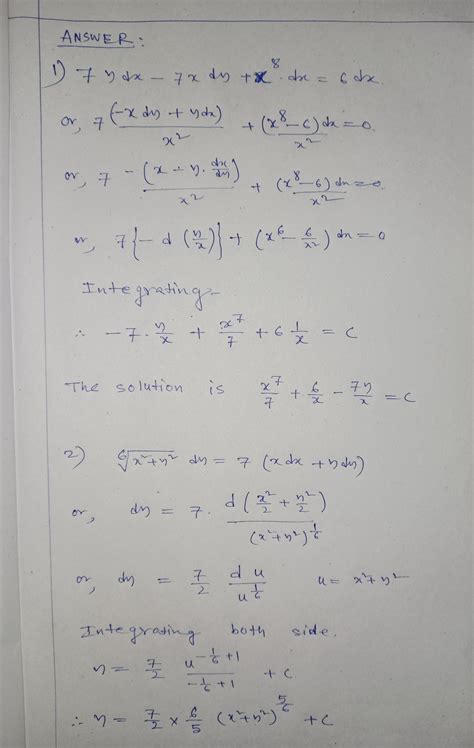 ANSWER:
1) 7 y dx − 7x dy + x^8. dx = 6 dx.
or, 7 (−x dy + y dx)/x^2 + (x^8 − 6) dx/x^2 = 0.
or, 7 −(x ÷ y. dx/dy)/x^2 + (x^8 − 6) dx/x^2 = 0.
or, 7{− d (y/x)} + (x^6 − 6/x^2) dx = 0
Integrating
∴ −7. y/x + x^7/7 + 6 1/x = C
The solution is x^7/7 + 6/x − 7y/x = C
2) ⁶√(x^2+y^2) dy = 7 (x dx + y dy)
or, dy = 7. d (x^2/2 + y^2/2)/(x^2+y^2)^(1/6)
or, dy = 7/2 du/u^(1/6) u = x^2+y^2
Integrating both side.
y = 7/2 u^(−1/6+1)/(−1/6+1) + C
∴ y = 7/2 × 6/5 (x^2+y^2)^(5/6) + C